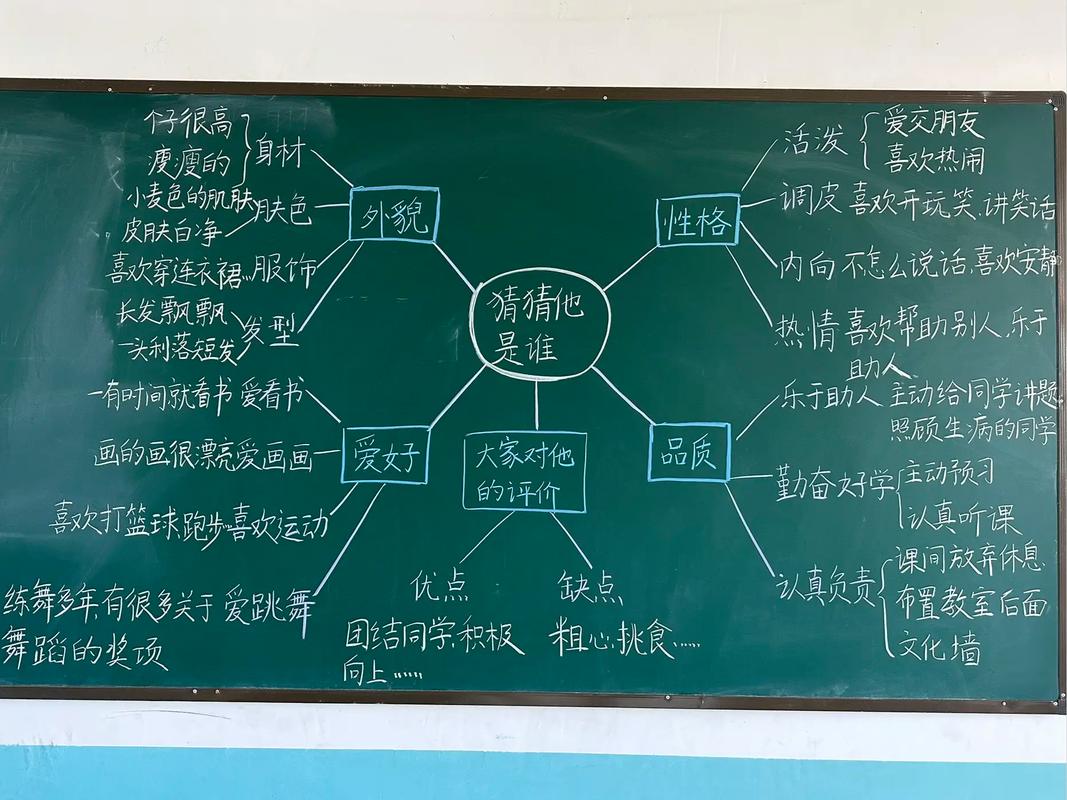 猜猜他
是谁
外貌
身材
仔很高
瘦瘦的
肤色
小麦色的肌肤
皮肤白净
喜欢穿连衣裙…服饰
发型
长发飘飘
一头利落短发
爱好
一有时间就看书 爱看书
画的画很漂亮爱画画
喜欢打篮球跑步…喜欢运动
练舞多年,有很多关于 爱跳舞
舞蹈的奖项
大家对他
的评价
优点
团结同学,积极
向上……
缺点
粗心,挑食……
性格
活泼
爱交朋友
喜欢热闹
调皮 喜欢开玩笑、讲笑话
内向 不怎么说话,喜欢安静
热情 喜欢帮助别人,乐于
助人
品质
乐于助人 主动给同学讲题
照顾生病的同学
勤奋好学
主动预习
认真听课
认真负责
课间放弃休息
布置教室后面
文化墙